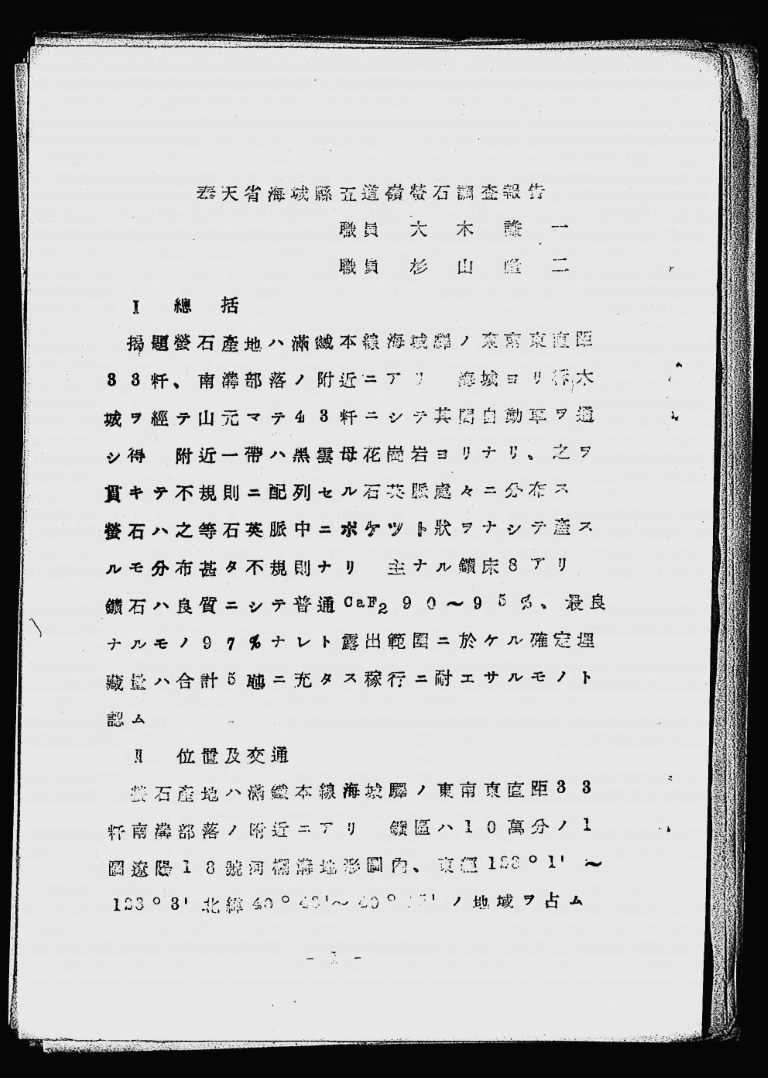 奉天省海城縣五道嶺螢石調査報告
職員 大木謙一
職員 杉山 二
I 總括
揭題螢石產地ハ滿鐵本線海城驛ノ東南東直距
33粁、南溝部落ノ附近ニアリ 海城ヨリ析木
城ヲ經テ山元マテ43粁ニシテ其間自動車ヲ通
シ得 附近一帶ハ黑雲母花崗岩ヨリナリ、之ヲ
貫キテ不規則ニ配列セル石英脈處々ニ分布ス
螢石ハ之等石英脈中ニポケツト狀ヲナシテ產ス
ルモ分布甚タ不規則ナリ 主ナル鑛床8アリ
鑛石ハ良質ニシテ普通CaF₂90～95%、最良
ナルモノ97%ナレト露出範圍ニ於ケル確定埋
藏量ハ合計5噸ニ充タス稼行ニ耐エサルモノト
認ム
II 位置及交通
螢石產地ハ滿鐵本線海城驛ノ東南東直距33
粁南溝部落ノ附近ニアリ 鑛區ハ10萬分ノ1
圖遼陽18號河欄溝地形圖內、東經123°1'～
123°3'北緯40°43'～40° ノ地域ヲ占ム
- 1 -